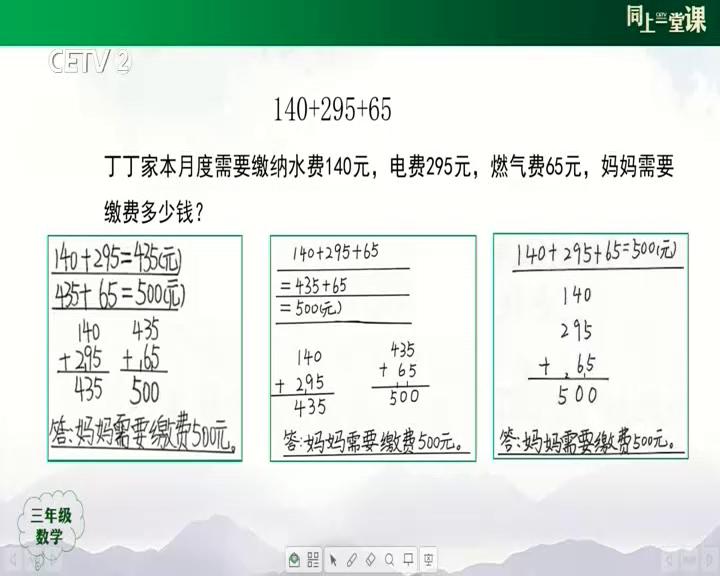 同上一堂课
CETV
CETV 2
140+295+65
丁丁家本月度需要缴纳水费140元，电费295元，燃气费65元，妈妈需要
缴费多少钱？
140+295=435(元)
435+65=500(元)
140 435
+295 +65
435 500
答:妈妈需要缴费500元。
140+295+65
=435+65
=500(元)
140 435
+295 +65
435 500
答:妈妈需要缴费500元。
140+295+65=500(元)
140
295
+ 65
500
答:妈妈需要缴费500元。
三年级
数学